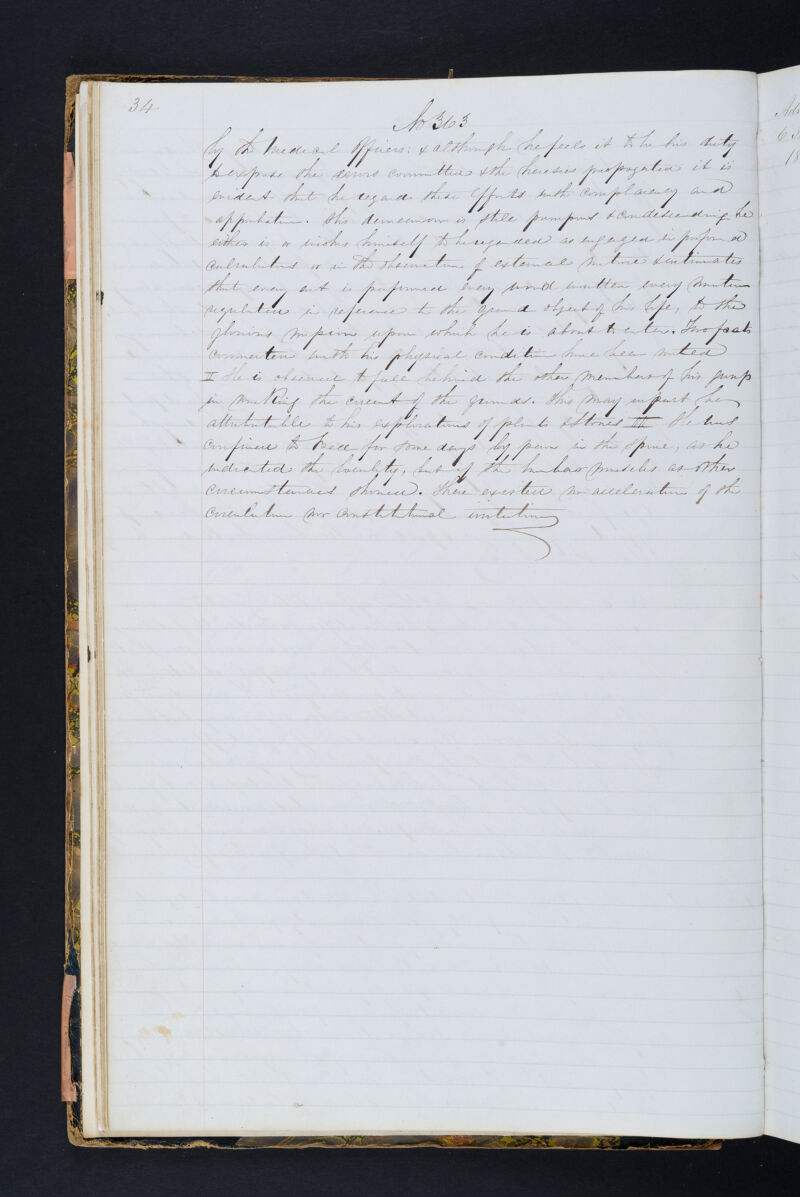 34
No 363
by the Medical Officers: & although he feels it to be his duty
to expose the errors committed & the heresies propagated it is
evident that he regards these efforts with complacency and
approbation. His demeanour is still pompous & condescending he
either is or wishes himself to be regarded as engaged in profound
calculations or in the observation of external nature & intimates
that every act is performed every word written every motion
regulated in reference to the grand object of his life, to the
glorious mission upon which he is about to enter. Two facts
connected with his physical condition have been noted
I He is observed to fall behind the other members of his group
in making the circuit of the grounds. This may in part be
attributable to his explorations of plants & stones II He was
confined to bed for some days by pain in the spine, as he
indicated the locality, but of the lumbar muscles as other
circumstances shewed. There existed no acceleration of the
circulation nor constitutional irritation
Ad
6
18